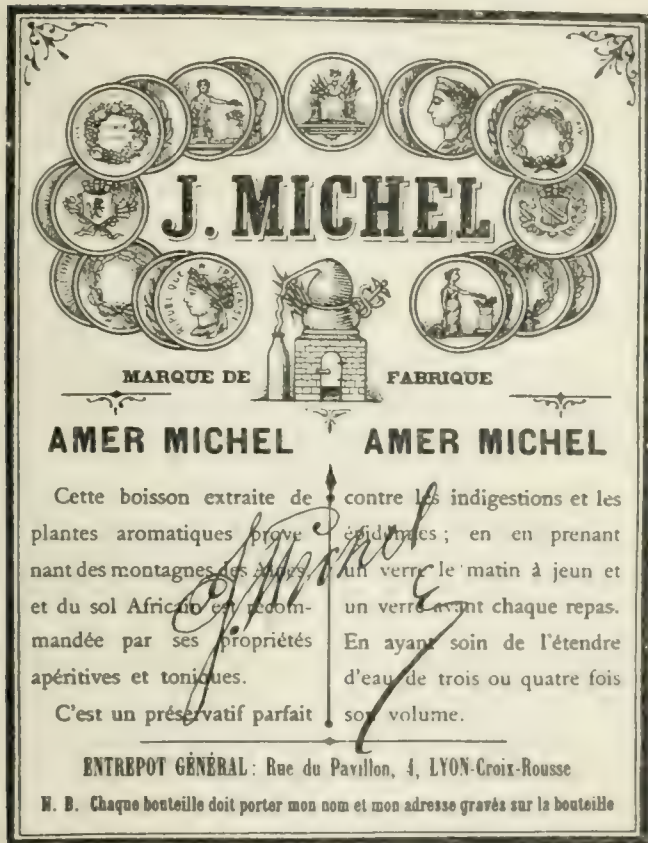 J. MICHEL
RÉPUBLIQUE FRANÇAISE
MARQUE DE FABRIQUE
AMER MICHEL
Cette boisson extraite de
plantes aromatiques prove
nant des montagnes des Alpes,
et du sol Africain est recom-
mandée par ses propriétés
apéritives et toniques.
C'est un préservatif parfait
AMER MICHEL
contre les indigestions et les
épidémies ; en en prenant
un verre le matin à jeun et
un verre avant chaque repas.
En ayant soin de l'étendre
d'eau de trois ou quatre fois
son volume.
J. Michel
ENTREPOT GÉNÉRAL : Rue du Pavillon, 4, LYON-Croix-Rousse
N. B. Chaque bouteille doit porter mon nom et mon adresse gravés sur la bouteille